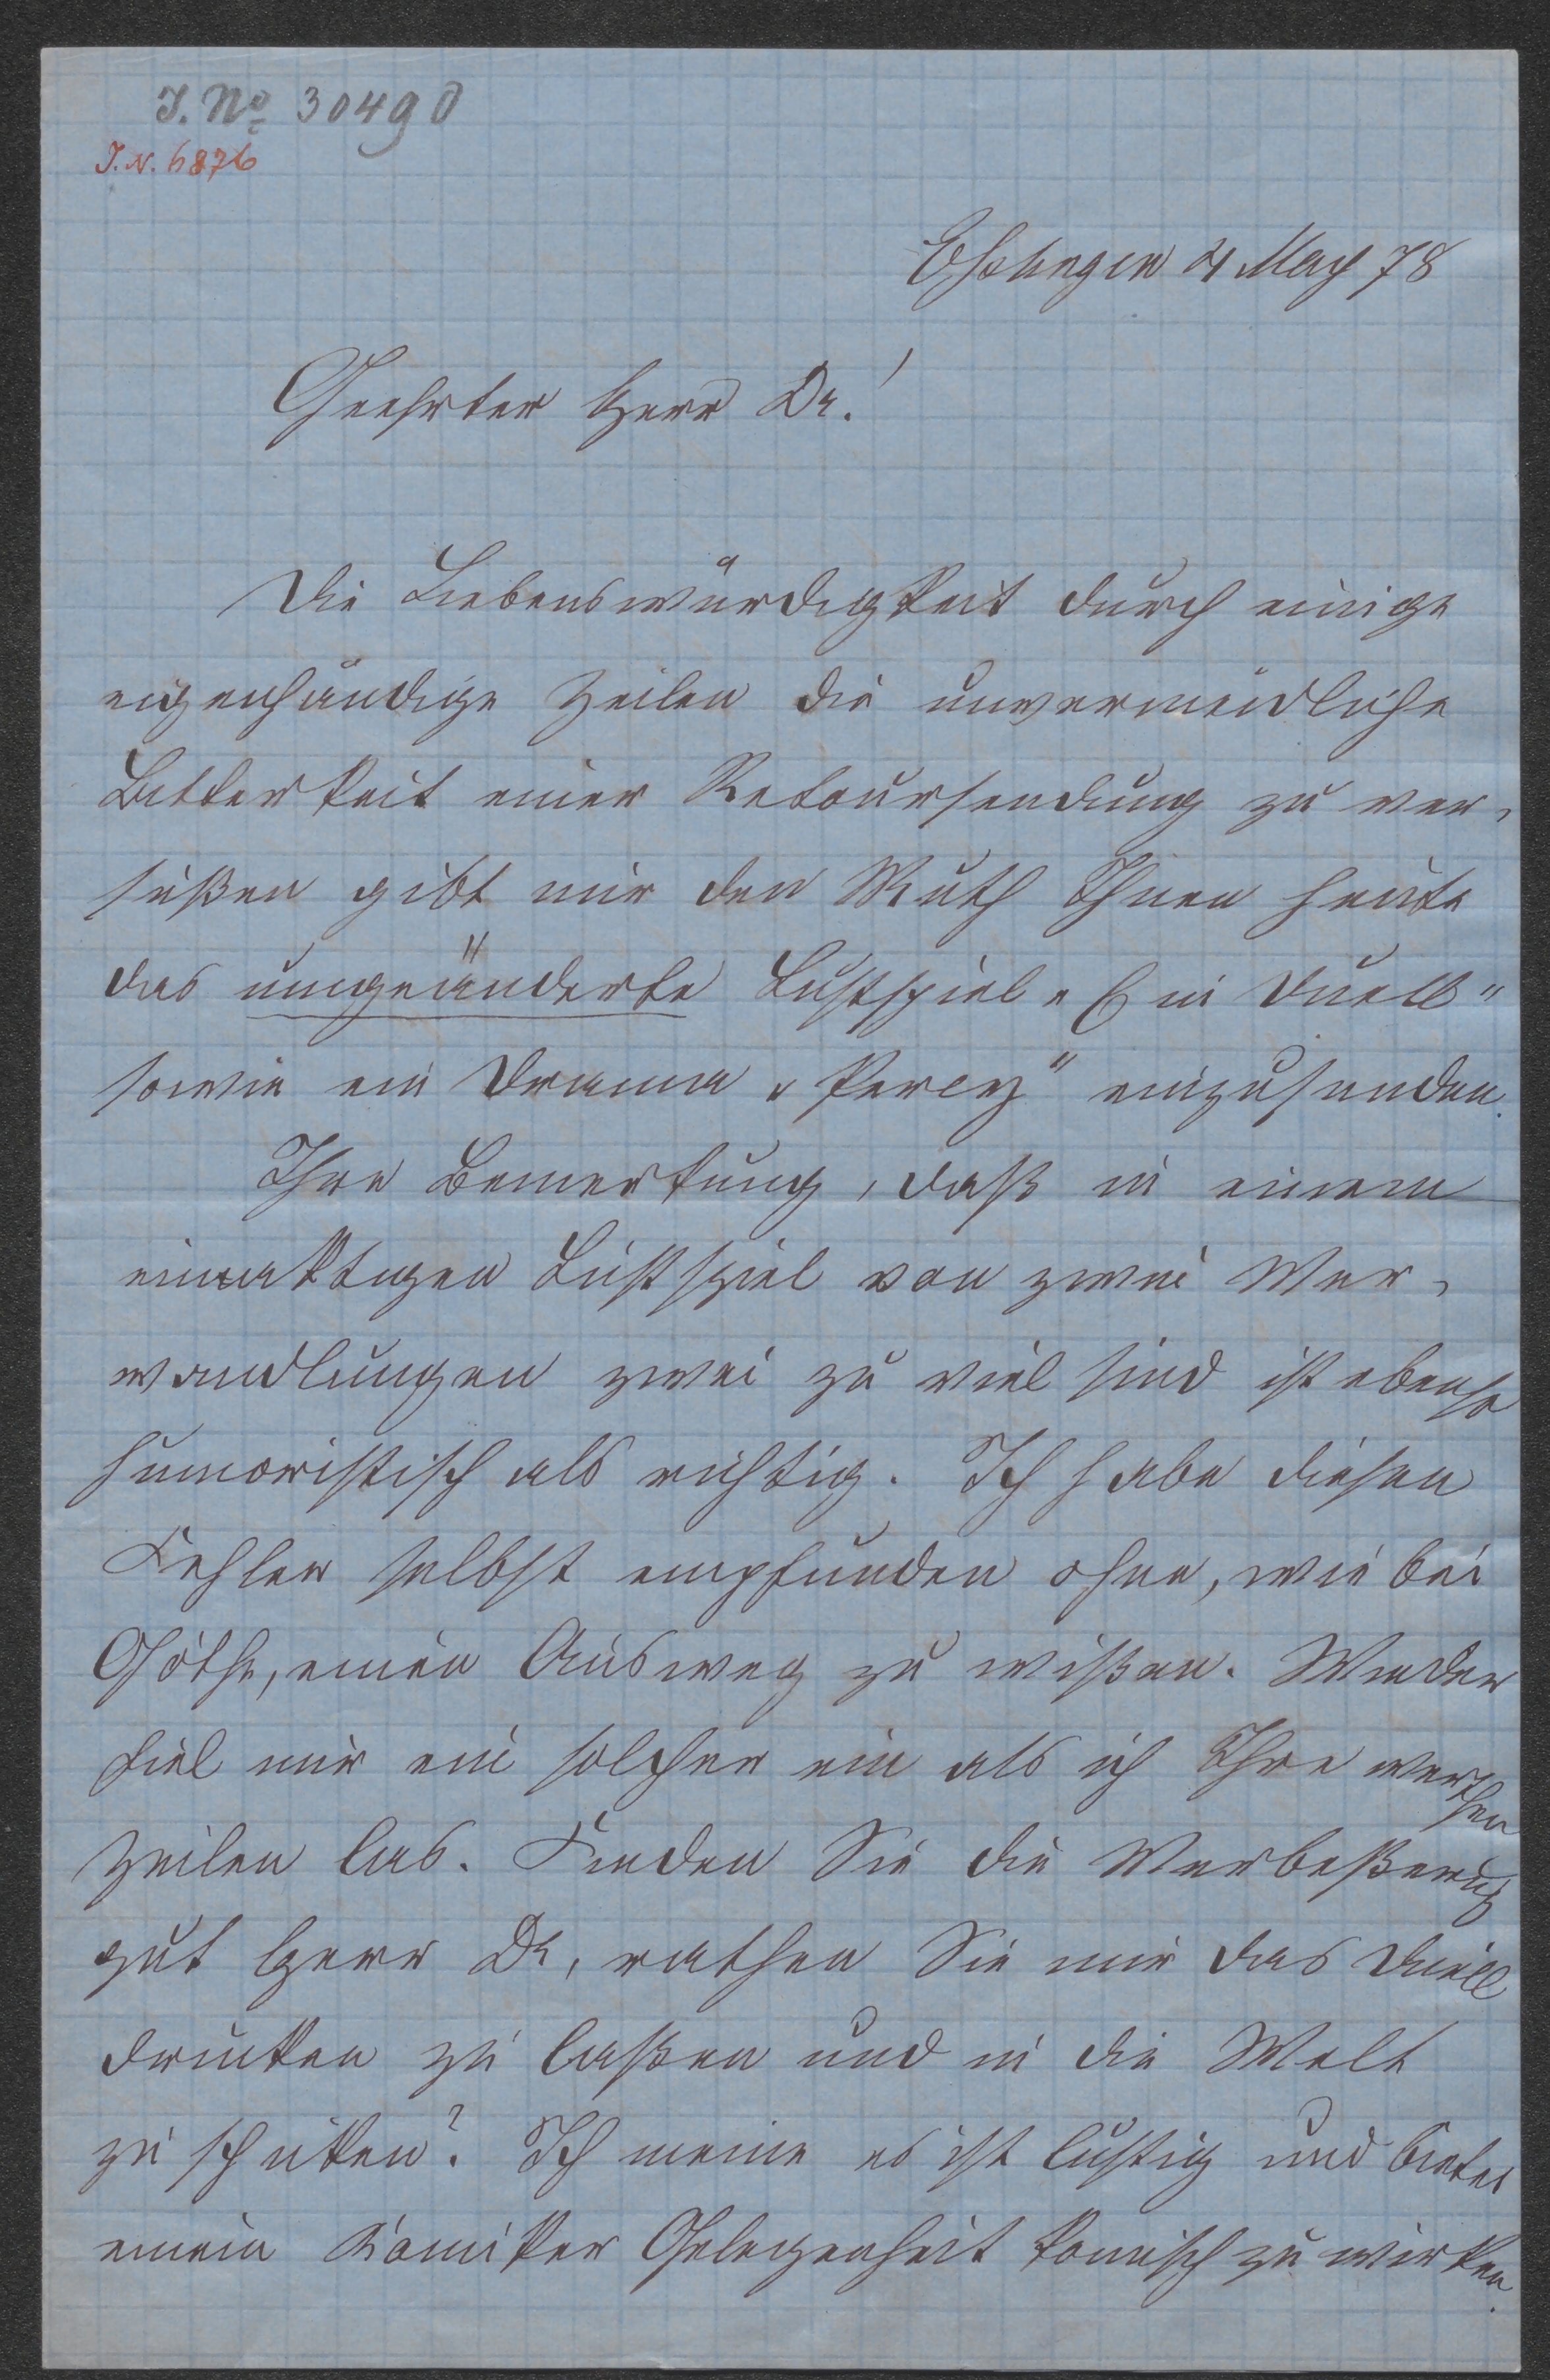 J. No 30490
J.N. 6876
Eßlingen 4 May 78
Geehrter Herr Dr.!
Die Liebenswürdigkeit durch einige
eigenhändige Zeilen die unvermeidliche
Bitterkeit einer Retoursendung zu ver-
süßen gibt mir den Muth Ihnen heute
das umgeänderte Lustspiel „Ein Duell"
sowie ein Drama „Percy" einzusenden.
Ihre Bemerkung, daß in einem
einaktigen Lustspiel von zwei Ver-
wandlungen zwei zu viel sind ist ebenso
humoristisch als richtig. Ich habe diesen
Fehler selbst empfunden ohne, wie bei
Göthe, einen Ausweg zu wißen. Wieder
fiel mir ein solcher ein als ich Ihre werthen
Zeilen las. Finden Sie die Verbeßerung
gut Herr Dr, rathen Sie mir das Duell
drucken zu laßen und in die Welt
zu schicken? Ich meine es ist lustig und bietet
einem Komiker Gelegenheit komisch zu wirken.